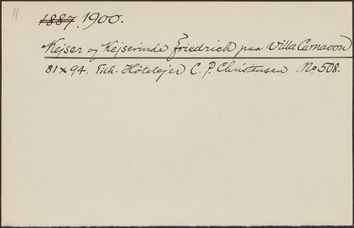 1887. 1900.
Kejser og Kejserinde Friedrich paa Villa Carnavon
81 x 94. Tilh. Hôtelejer C. P. Christensen No 508.